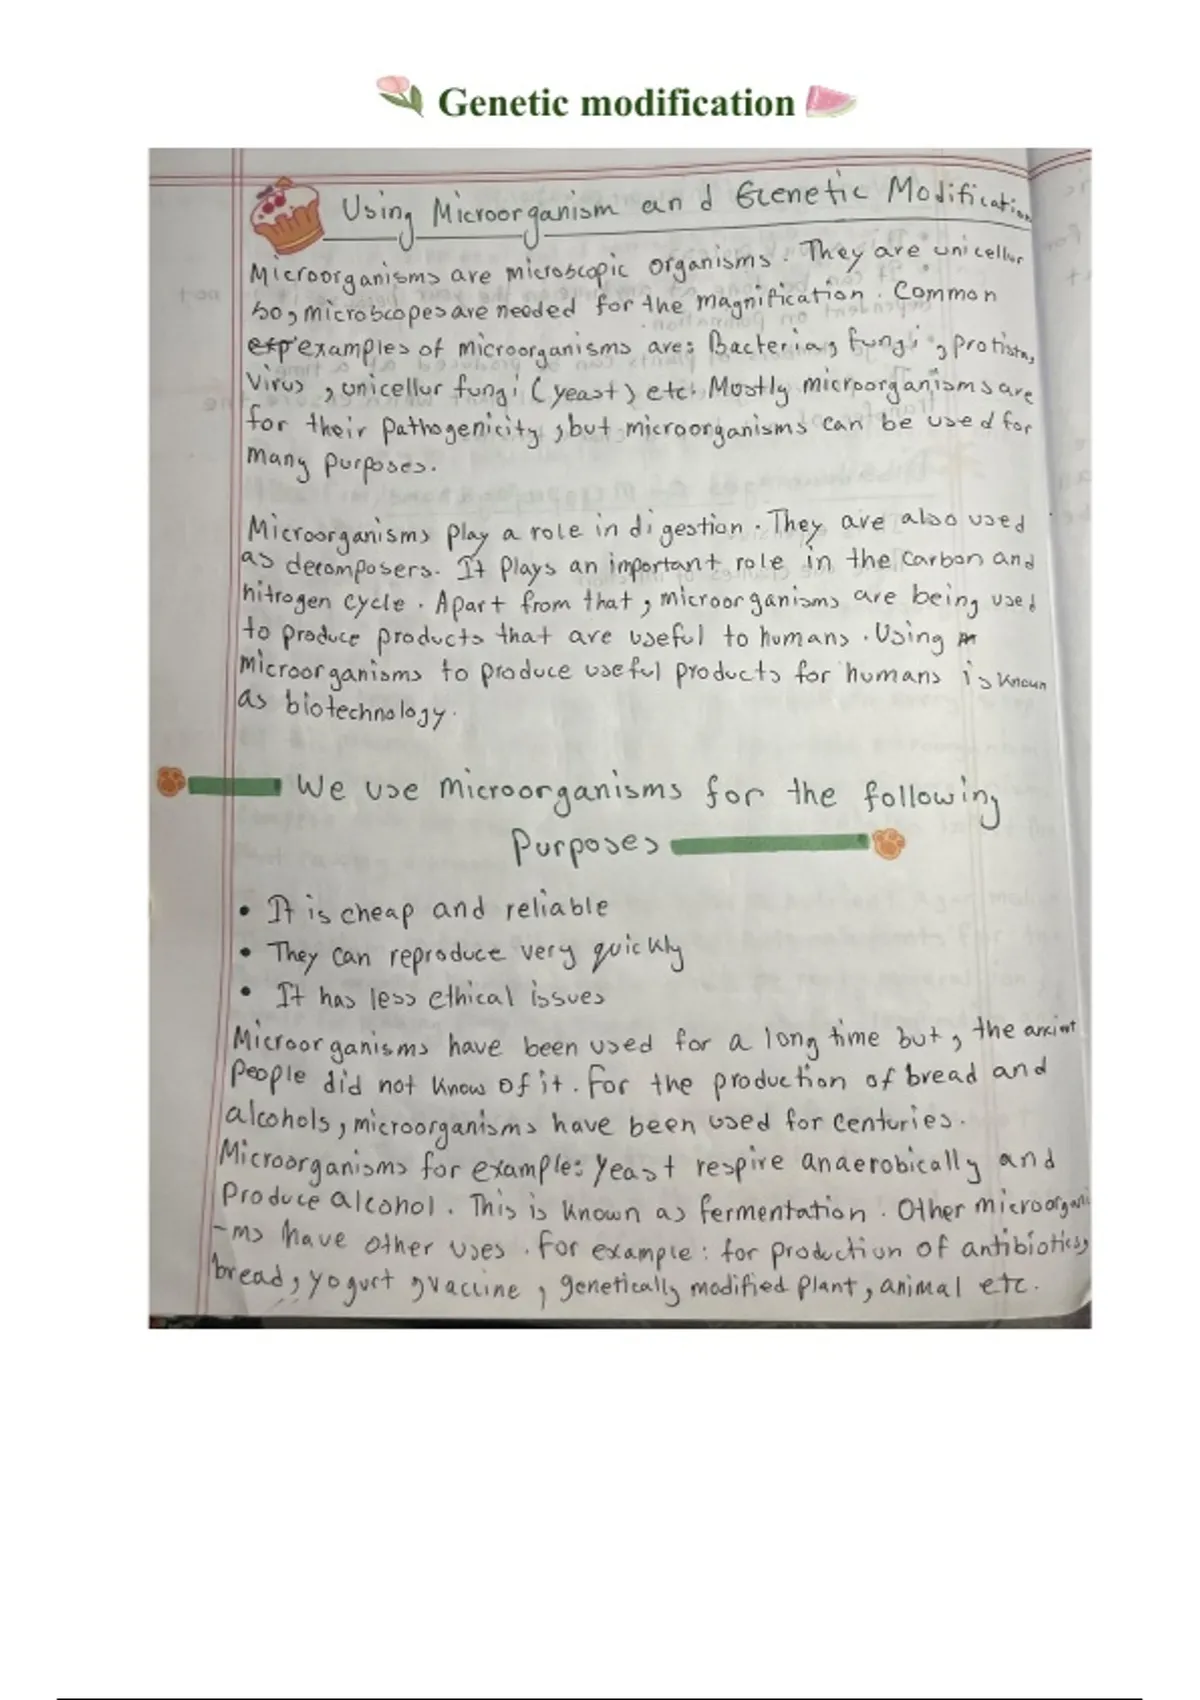 Genetic modification
Using Microorganism and Genetic Modification
Microorganisms are microscopic organisms. They are unicellur
so, microscopes are needed for the magnification. Common
exp examples of microorganisms are: Bacteria, fungi, protista,
Virus, unicellur fungi (yeast) etc. Mostly microorganisms are
for their pathogenicity, but microorganisms can be used for
many purposes.
Microorganisms play a role in digestion. They are also used
as decomposers. It plays an important role in the carbon and
nitrogen cycle. Apart from that, microorganisms are being used
to produce products that are useful to humans. Using m
microorganisms to produce useful products for humans is known
as biotechnology.
We use microorganisms for the following
Purposes
• It is cheap and reliable
• They can reproduce very quickly
• It has less ethical issues
Microorganisms have been used for a long time but, the ancient
people did not know of it. For the production of bread and
alcohols, microorganisms have been used for centuries.
Microorganisms for example: yeast respire anaerobically and
produce alcohol. This is known as fermentation. Other microorgani
-ms have other uses. For example: for production of antibiotics,
bread, yogurt, vaccine, genetically modified plant, animal etc.